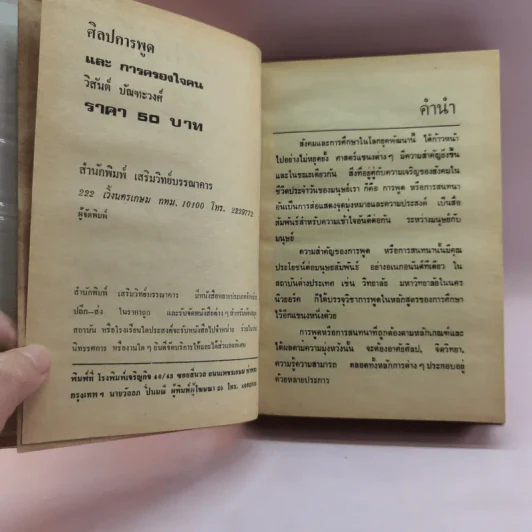 ศิลปการพูด
และ การครองใจคน
วิสันต์ บัณฑะวงศ์
ราคา 50 บาท
สำนักพิมพ์ เสริมวิทย์บรรณาคาร
222 เวิ้งนครเกษม กทม. 10100 โทร.
ผู้จัดพิมพ์
สำนักพิมพ์ เสริมวิทย์บรรณาคาร
ปลีก—ส่ง ในราคาถูก
สถาบัน หรือโรงเรียนใดประสงค์จะรับหนังสือไปจำหน่าย
นิทรรศการ หรืองานใด ๆ ยินดีจัดบริการให้และได้ส่วนลดพิเศษ
พิมพ์ที่ โรงพิมพ์เจริญกิจ
กรุงเทพฯ
คำนำ
สังคมและการศึกษาในโลกยุคพัฒนานี้ ได้ก้าวหน้า
ไปอย่างไม่หยุดยั้ง ศาสตร์แขนงต่าง ๆ มีความสำคัญยิ่งขึ้น
และในขณะเดียวกัน สิ่งที่อยู่คู่กับความเจริญของสังคมใน
ชีวิตประจำวันของมนุษย์เรา ก็คือ การพูด หรือการสนทนา
อันเป็นการส่อแสดงจุดมุ่งหมายและความประสงค์ เป็นสื่อ
สัมพันธ์สำหรับความเข้าใจอันดีต่อกัน ระหว่างมนุษย์กับ
มนุษย์
ความสำคัญของการพูด หรือการสนทนานั้นมีคุณ
ประโยชน์ต่อมนุษย์สัมพันธ์ อย่างอเนกอนันต์ทีเดียว ใน
สถาบันต่างประเทศ เช่น วิทยาลัย มหาวิทยาลัยในนคร
นิวยอร์ค ก็ได้บรรจุวิชาการพูดในหลักสูตรของการศึกษา
ไว้อีกแขนงหนึ่งด้วย
การพูดหรือการสนทนาที่ถูกต้องตามหลักเกณฑ์และ
ได้ผลตามความมุ่งหวังนั้น จะต้องอาศัยศิลป, จิตวิทยา,
ความรู้ความสามารถ ตลอดทั้งหลักการต่าง ๆ ประกอบอยู่
ด้วยหลายประการ